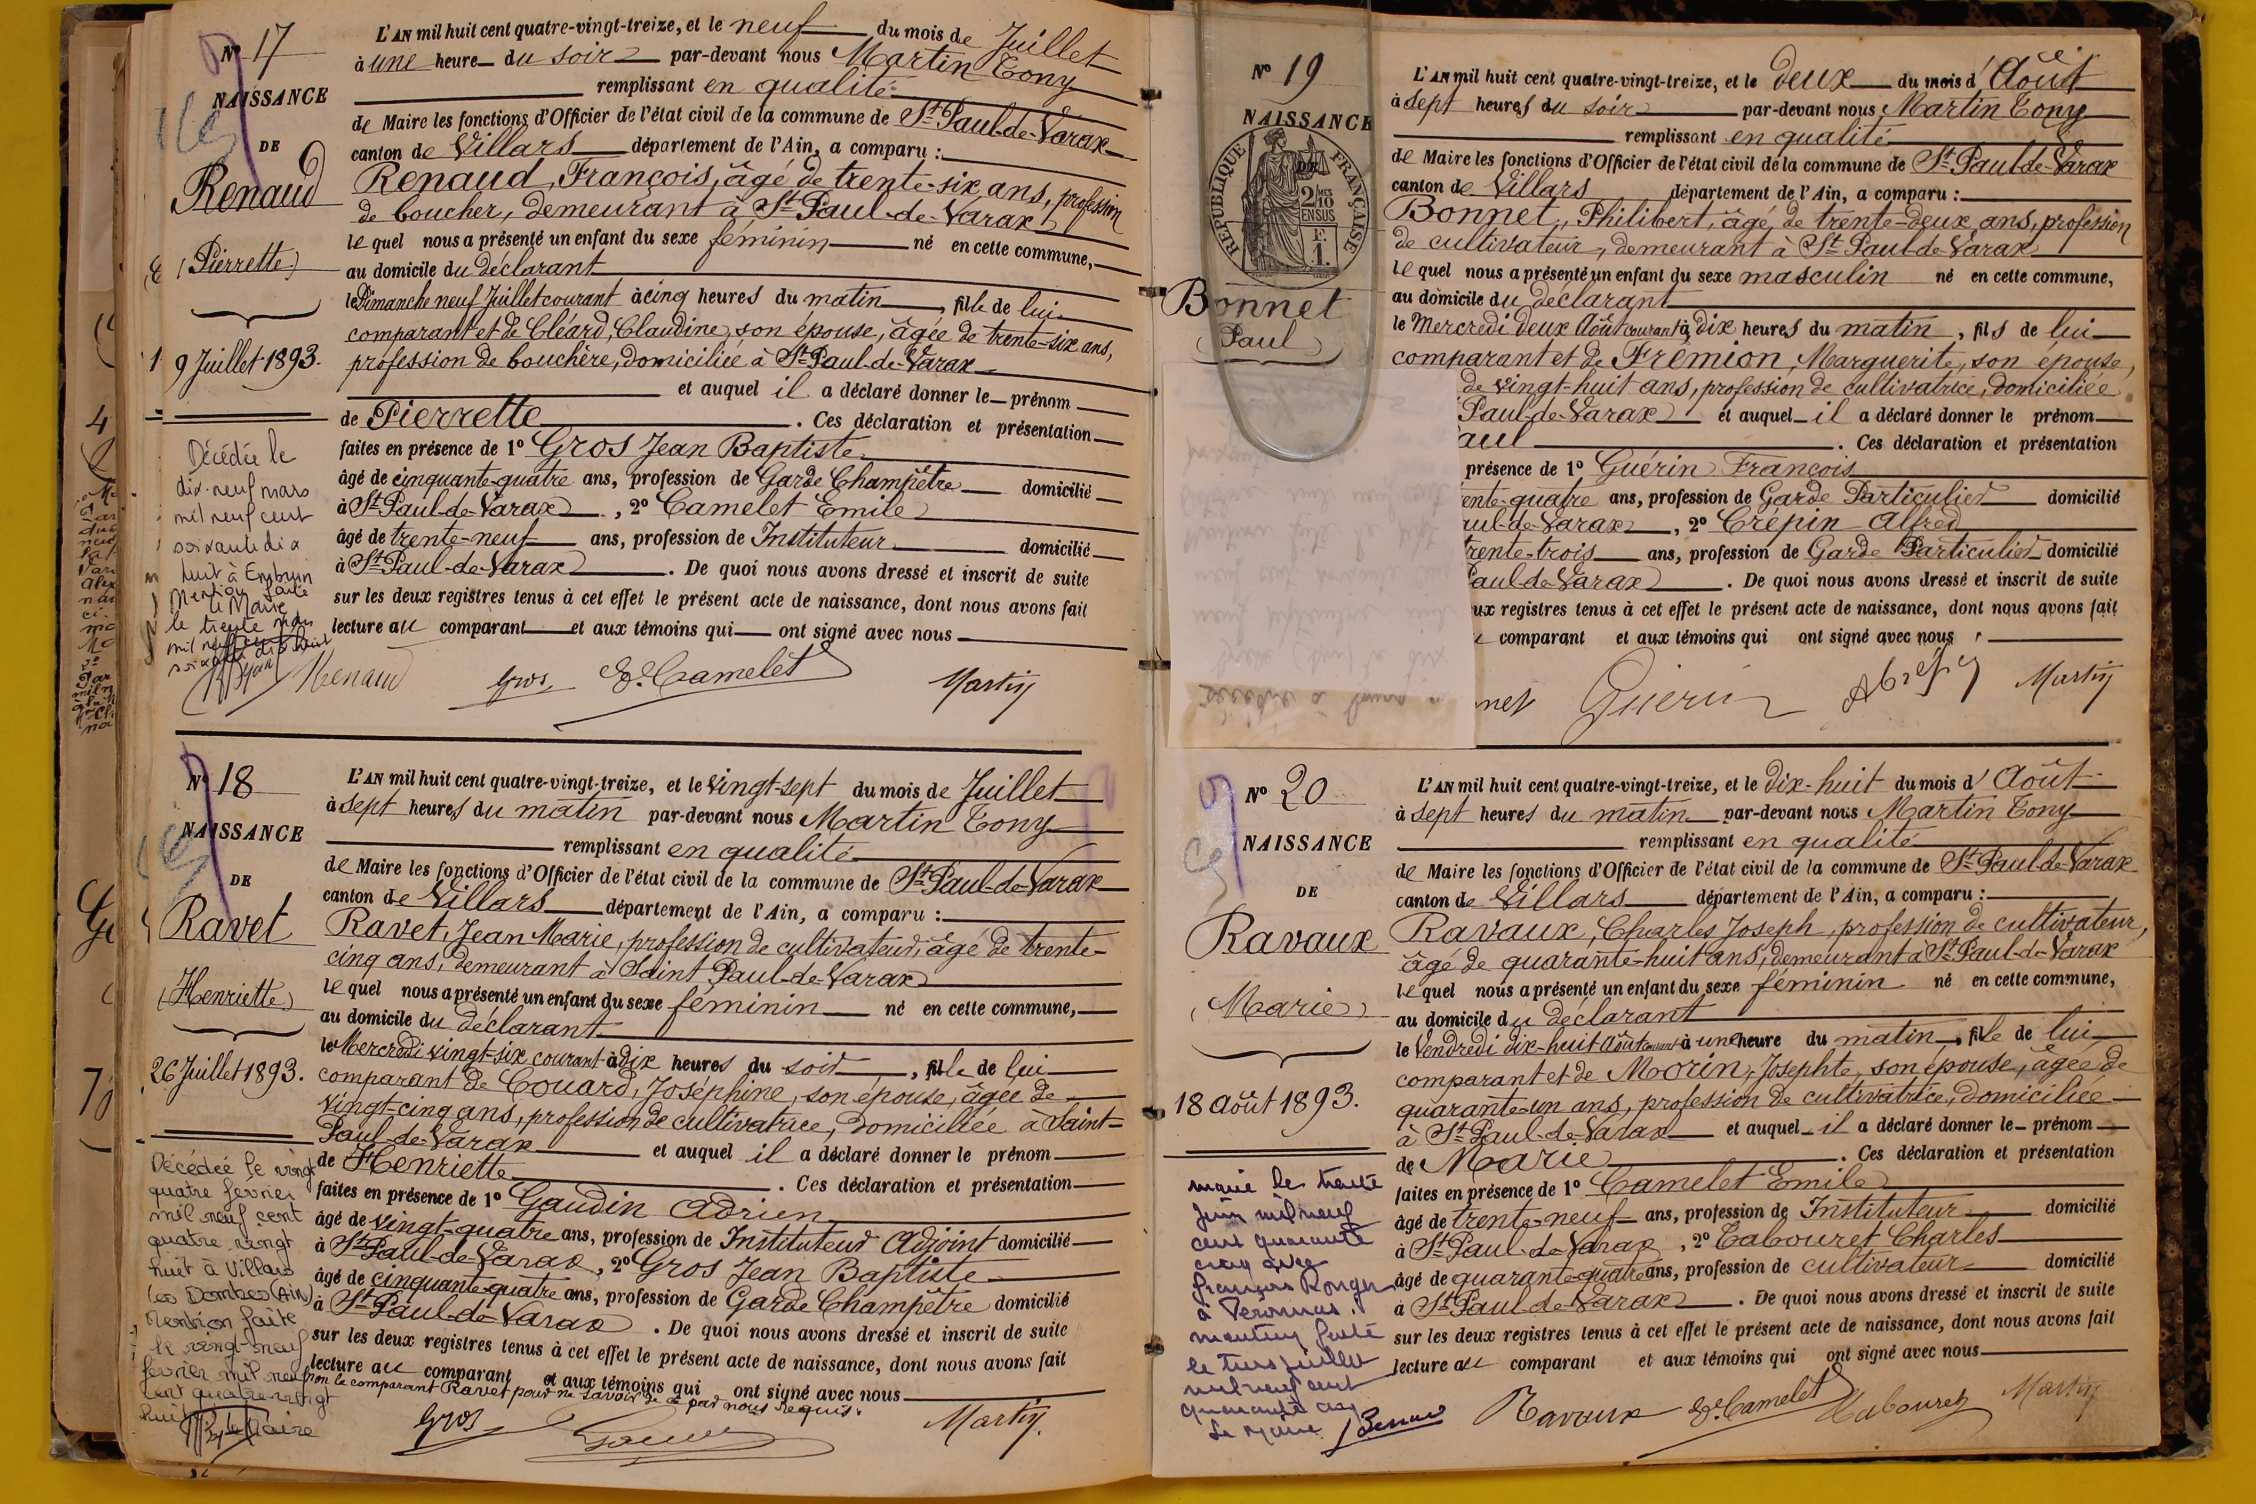 N° 17
NAISSANCE
DE
Renaud
(Pierrette)
9 Juillet 1893.
Décédée le
dix-neuf mars
mil neuf cent
soixante dix
huit à Embrun
Mention faite
le trente mars
mil neuf cent
soixante dix huit
L'AN mil huit cent quatre-vingt-treize, et le neuf du mois de Juillet
à une heure du soir par-devant nous Martin Tony
remplissant en qualité
de Maire les fonctions d'Officier de l'état civil de la commune de St Paul-de-Varax
canton de Villars département de l'Ain, a comparu :
Renaud, François, âgé de trente-six ans, profession
de boucher, demeurant à St Paul-de-Varax
lequel nous a présenté un enfant du sexe féminin né en cette commune,
au domicile du déclarant
le Dimanche neuf Juillet courant à cinq heures du matin, fille de lui
comparant et de Cléard, Claudine, son épouse, âgée de trente-six ans,
profession de bouchère, domiciliée à St Paul-de-Varax
et auquel il a déclaré donner le prénom
de Pierrette. Ces déclaration et présentation
faites en présence de 1° Gros Jean Baptiste
âgé de cinquante-quatre ans, profession de Garde Champêtre domicilié
à St Paul-de-Varax, 2° Camelet Emile
âgé de trente-neuf ans, profession de Instituteur domicilié
à St Paul-de-Varax. De quoi nous avons dressé et inscrit de suite
sur les deux registres tenus à cet effet le présent acte de naissance, dont nous avons fait
lecture au comparant et aux témoins qui ont signé avec nous
Renaud Gros E. Camelet Martin
N° 18
NAISSANCE
DE
Ravet
(Henriette)
26 Juillet 1893.
Décédée le vingt
quatre février
mil neuf cent
quatre vingt
huit à Villars
les Dombes (Ain)
Mention faite
le vingt-neuf
février mil neuf
cent quatre-vingt
huit
Le Maire
L'AN mil huit cent quatre-vingt-treize, et le vingt-sept du mois de Juillet
à sept heures du matin par-devant nous Martin Tony
remplissant en qualité
de Maire les fonctions d'Officier de l'état civil de la commune de St Paul-de-Varax
canton de Villars département de l'Ain, a comparu :
Ravet, Jean Marie, profession de cultivateur, âgé de trente-
cinq ans, demeurant à Saint Paul-de-Varax
lequel nous a présenté un enfant du sexe féminin né en cette commune,
au domicile du déclarant
le Mercredi vingt-six courant à dix heures du soir, fille de lui
comparant de Couard, Joséphine, son épouse, âgée de
vingt-cinq ans, profession de cultivatrice, domiciliée à Saint-
Paul-de-Varax et auquel il a déclaré donner le prénom
de Henriette. Ces déclaration et présentation
faites en présence de 1° Gaudin Adrien
âgé de vingt-quatre ans, profession de Instituteur Adjoint domicilié
à St Paul-de-Varax, 2° Gros Jean Baptiste
âgé de cinquante-quatre ans, profession de Garde Champêtre domicilié
à St Paul-de-Varax. De quoi nous avons dressé et inscrit de suite
sur les deux registres tenus à cet effet le présent acte de naissance, dont nous avons fait
lecture au comparant et aux témoins qui ont signé avec nous
non le comparant Ravet pour ne savoir de ce par nous requis.
Gros Martin
N° 19
NAISSANCE
DE
RÉPUBLIQUE FRANÇAISE
2/10
EN SUS
Bonnet
(Paul)
L'AN mil huit cent quatre-vingt-treize, et le deux du mois d'Août
à sept heures du soir par-devant nous Martin Tony
remplissant en qualité
de Maire les fonctions d'Officier de l'état civil de la commune de St Paul-de-Varax
canton de Villars département de l'Ain, a comparu :
Bonnet, Philibert, âgé de trente-deux ans, profession
de cultivateur, demeurant à St Paul-de-Varax
lequel nous a présenté un enfant du sexe masculin né en cette commune,
au domicile du déclarant
le Mercredi deux Août courant à dix heures du matin, fils de lui
comparant et de Frémion, Marguerite, son épouse,
de vingt-huit ans, profession de cultivatrice, domiciliée
Paul-de-Varax et auquel il a déclaré donner le prénom
aul. Ces déclaration et présentation
présence de 1° Guérin François
ente-quatre ans, profession de Garde Particulier domicilié
ul-de-Varax, 2° Crépin Alfred
trente-trois ans, profession de Garde Particulier domicilié
Paul-de-Varax. De quoi nous avons dressé et inscrit de suite
ux registres tenus à cet effet le présent acte de naissance, dont nous avons fait
comparant et aux témoins qui ont signé avec nous
net Guérin Martin
N° 20
NAISSANCE
DE
Ravaux
(Marie)
18 Août 1893.
marié le trente
juin mil neuf
cent quarante
cinq avec
à Péronnas.
mention faite
le trois juillet
mil neuf cent
quarante cinq
Le Maire
L'AN mil huit cent quatre-vingt-treize, et le dix-huit du mois d'Août
à sept heures du matin par-devant nous Martin Tony
remplissant en qualité
de Maire les fonctions d'Officier de l'état civil de la commune de St Paul-de-Varax
canton de Villars département de l'Ain, a comparu :
Ravaux, Charles Joseph, profession de cultivateur,
âgé de quarante-huit ans, demeurant à St Paul-de-Varax
lequel nous a présenté un enfant du sexe féminin né en cette commune,
au domicile du déclarant
le Vendredi dix-huit Août courant à une heure du matin, fille de lui
comparant et de Morin, Josephte, son épouse, âgée de
quarante-un ans, profession de cultivatrice, domiciliée
à St Paul-de-Varax et auquel il a déclaré donner le prénom
de Marie. Ces déclaration et présentation
faites en présence de 1° Camelet Emile
âgé de trente-neuf ans, profession de Instituteur domicilié
à St Paul-de-Varax, 2° Tabouret Charles
âgé de quarante-quatre ans, profession de cultivateur domicilié
à St Paul-de-Varax. De quoi nous avons dressé et inscrit de suite
sur les deux registres tenus à cet effet le présent acte de naissance, dont nous avons fait
lecture au comparant et aux témoins qui ont signé avec nous
Ravaux E. Camelet Tabouret Martin